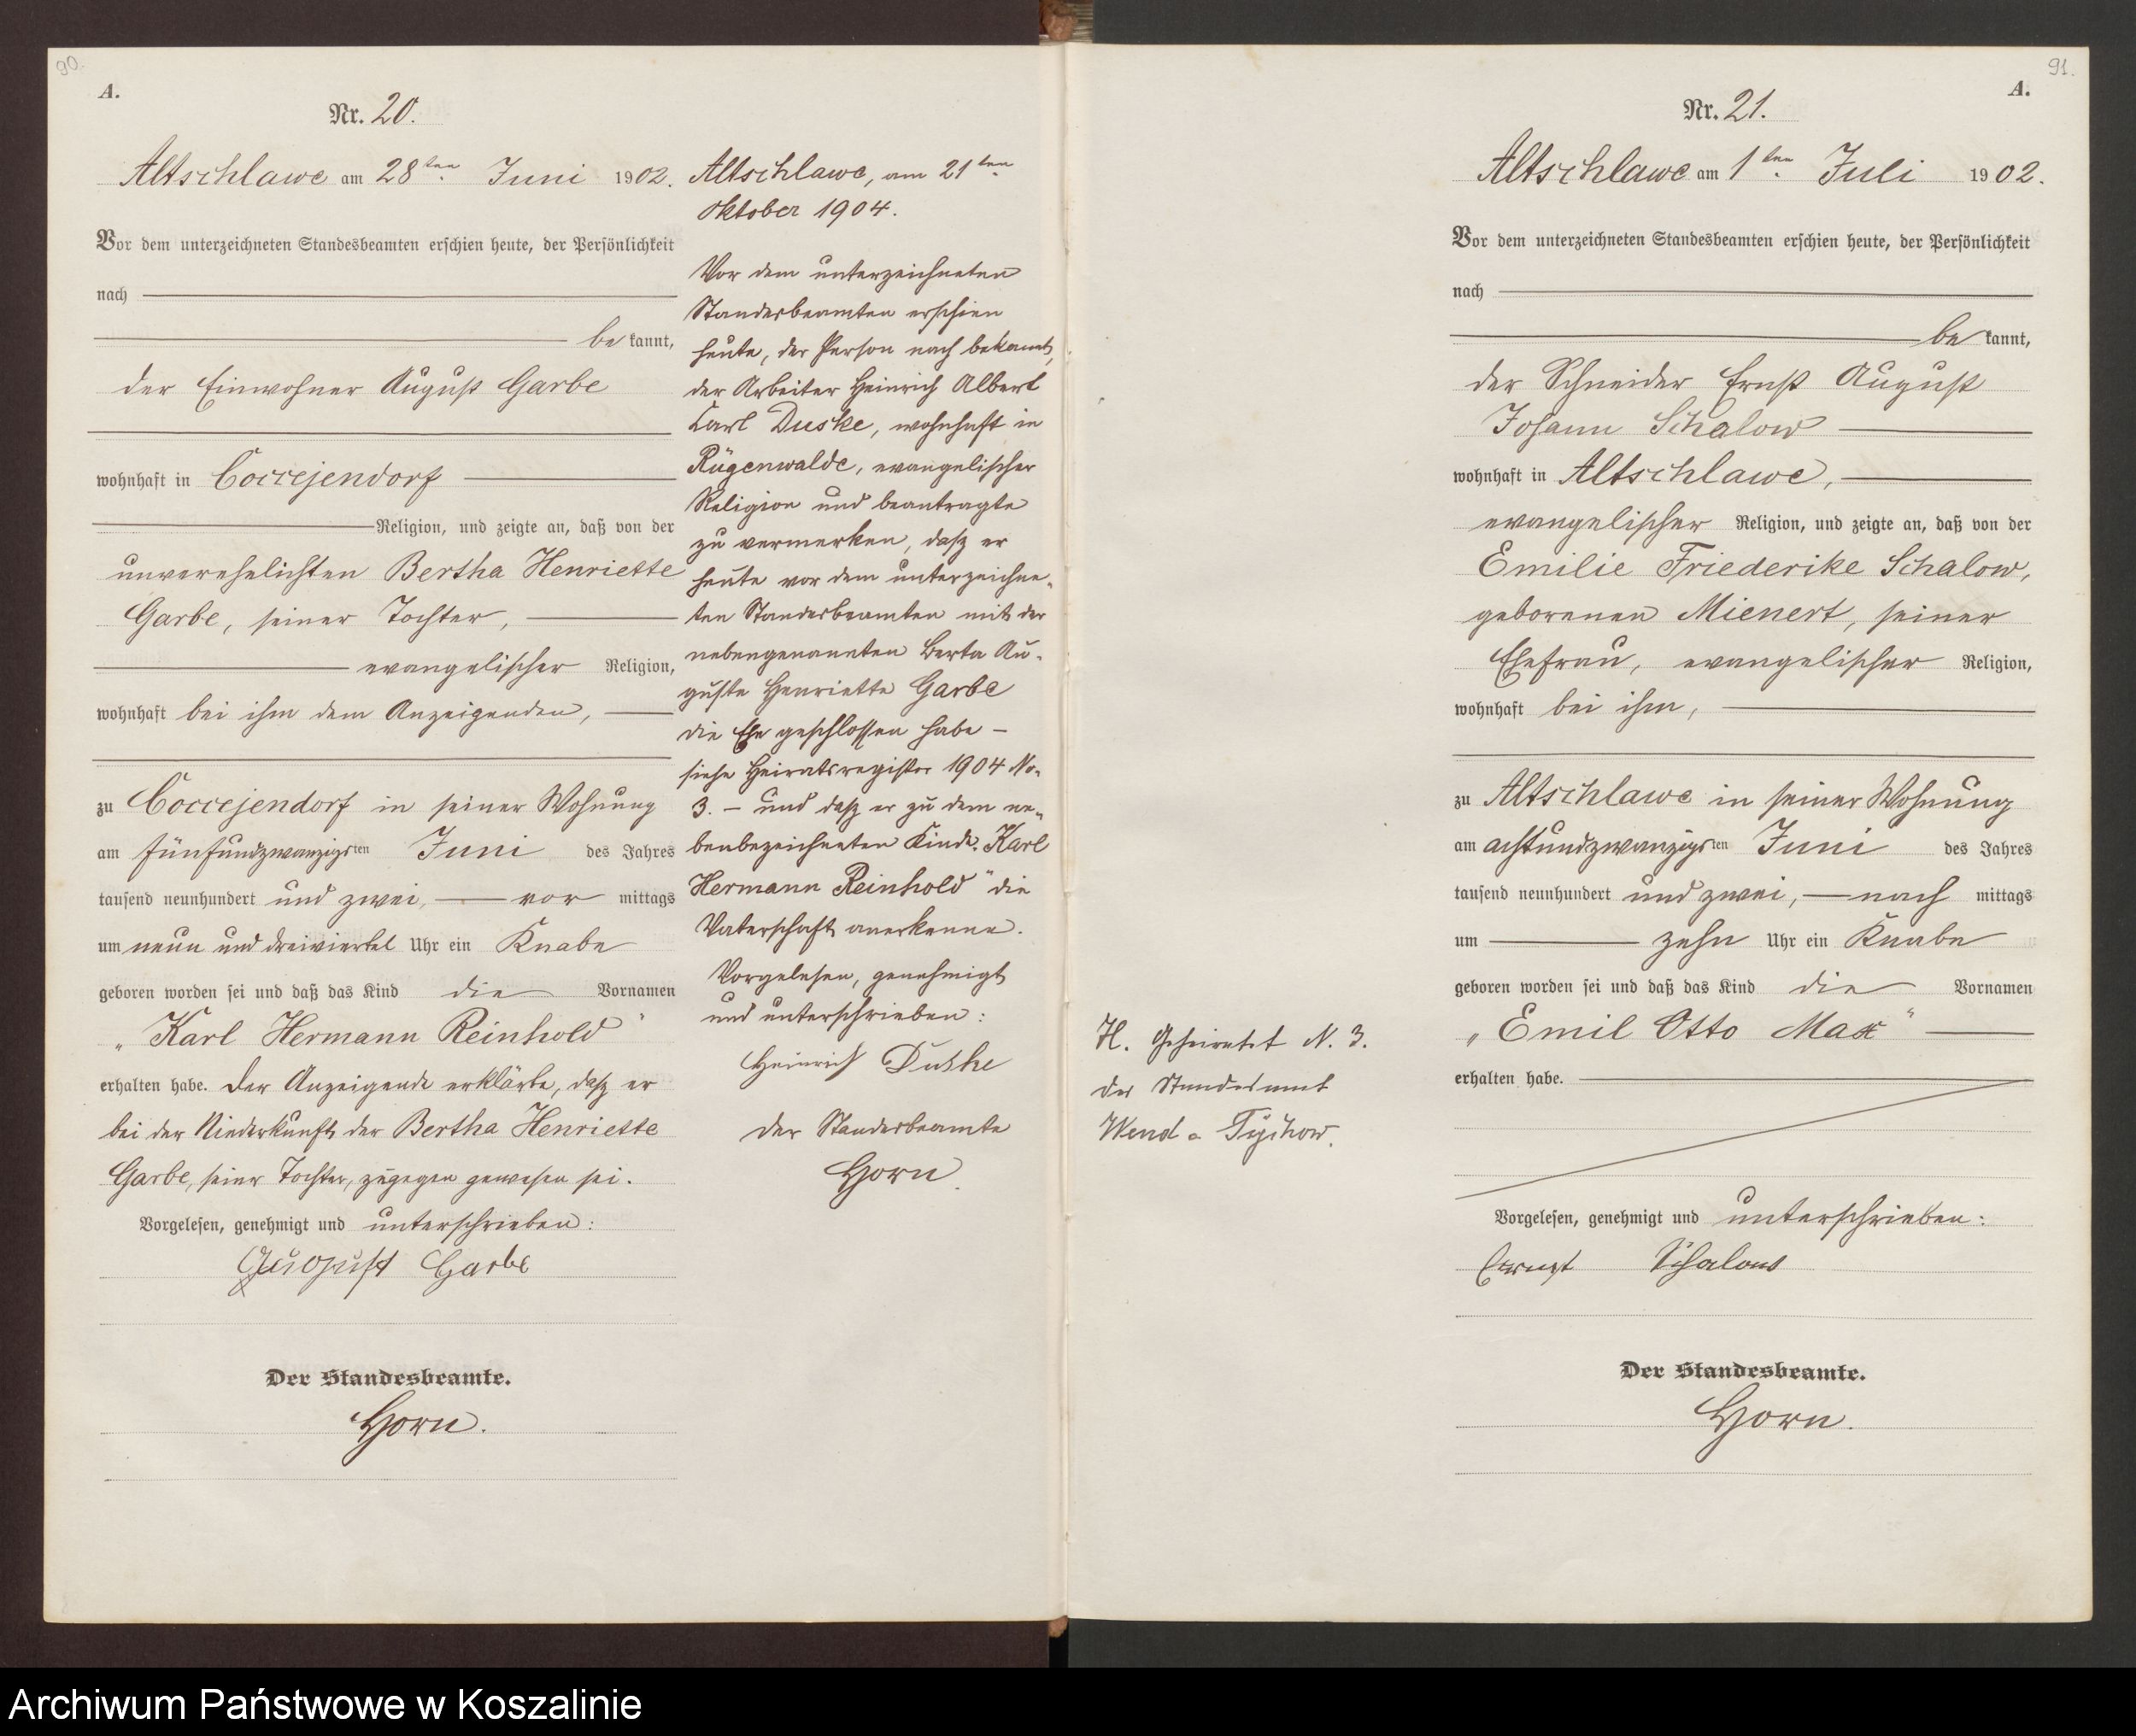 90.
A.
Nr. 20.
Altschlawe am 28ten Juni 1902.
Vor dem unterzeichneten Standesbeamten erschien heute, der Persönlichkeit
nach
bekannt,
der Einwohner August Garbe
wohnhaft in Coccejendorf
Religion, und zeigte an, daß von der
unverehelichten Bertha Henriette
Garbe, seiner Tochter,
evangelischer Religion,
wohnhaft bei ihm dem Anzeigenden,
zu Coccejendorf in seiner Wohnung
am fünfundzwanzigsten Juni des Jahres
tausend neunhundert und zwei, vormittags
um neun und dreiviertel Uhr ein Knabe
geboren worden sei und daß das Kind die Vornamen
„Karl Hermann Reinhold"
erhalten habe. Der Anzeigende erklärte, daß er
bei der Niederkunft der Bertha Henriette
Garbe, seiner Tochter, zugegen gewesen sei.
Vorgelesen, genehmigt und unterschrieben:
August Garbe
Der Standesbeamte.
Horn.
Altschlawe, am 21ten
Oktober 1904.
Vor dem unterzeichneten
Standesbeamten erschien
heute, der Person nach bekannt,
der Arbeiter Heinrich Albert
Karl Duske, wohnhaft in
Rügenwalde, evangelischer
Religion und beantragte
zu vermerken, daß er
heute vor dem unterzeichne-
ten Standesbeamten mit der
nebengenannten Berta Au-
guste Henriette Garbe
die Ehe geschlossen habe –
siehe Heiratsregister 1904 No.
3. – und daß er zu dem ne-
benbezeichneten Kinde „Karl
Hermann Reinhold" die
Vaterschaft anerkenne.
Vorgelesen, genehmigt
und unterschrieben:
Heinrich Duske
Der Standesbeamte
Horn.
91.
A.
Nr. 21.
Altschlawe am 1ten Juli 1902.
Vor dem unterzeichneten Standesbeamten erschien heute, der Persönlichkeit
nach
bekannt,
der Schneider Ernst August
Johann Schalow
wohnhaft in Altschlawe,
evangelischer Religion, und zeigte an, daß von der
Emilie Friederike Schalow,
geborenen Mienert, seiner
Ehefrau, evangelischer Religion,
wohnhaft bei ihm,
zu Altschlawe in seiner Wohnung
am achtundzwanzigsten Juni des Jahres
tausend neunhundert und zwei, nachmittags
um zehn Uhr ein Knabe
geboren worden sei und daß das Kind die Vornamen
„Emil Otto Max"
erhalten habe.
Vorgelesen, genehmigt und unterschrieben:
Ernst Schalow
Der Standesbeamte.
Horn.
H. Geheiratet N. 3.
des Standesamt
Wend-Tychow.
Archiwum Państwowe w Koszalinie